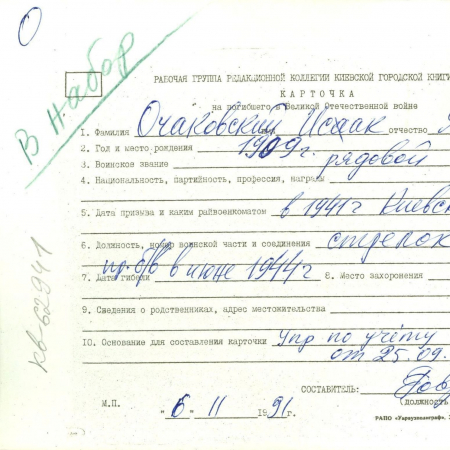 О
В набор
РАБОЧАЯ ГРУППА РЕДАКЦИОННОЙ КОЛЛЕГИИ КИЕВСКОЙ ГОРОДСКОЙ КНИГИ
КАРТОЧКА
на погибшего в Великой Отечественной войне
1. Фамилия Очаковский Исаак отчество
2. Год и место рождения 1909г.
3. Воинское звание рядовой
4. Национальность, партийность, профессия, награды
5. Дата призыва и каким райвоенкоматом в 1941г Киевск
6. Должность, номер воинской части и соединения стрелок
7. Дата гибели пр. б/в в июне 1944г 8. Место захоронения
9. Сведения о родственниках, адрес местожительства
10. Основание для составления карточки Упр по учёту
от 25.09.
СОСТАВИТЕЛЬ:
(должность
М.П. "6" 11 1991г.
РАПО «Укрвузполиграф».
кв-62941